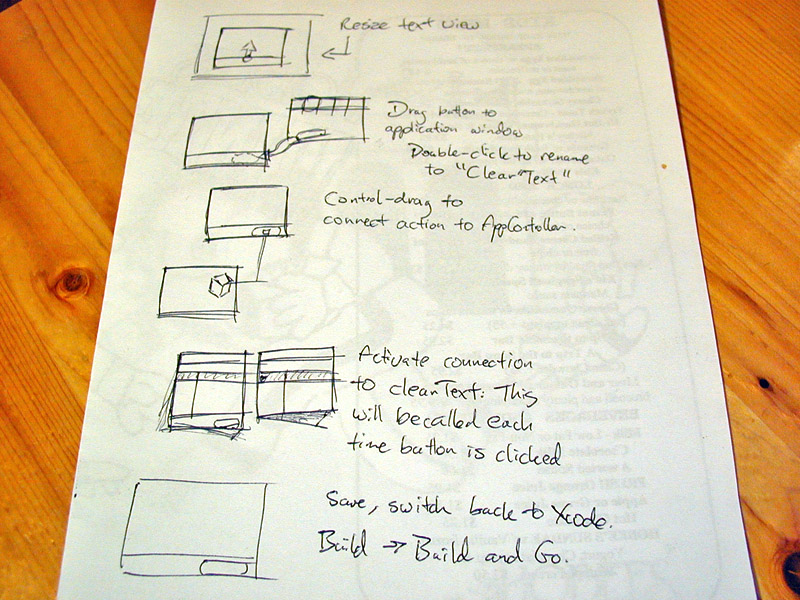 Resize text view
Drag button to
application window
Double-click to rename
to "Clear Text"
Control-drag to
connect action to AppController.
Activate connection
to clearText: This
will be called each
time button is clicked
Save, switch back to Xcode.
Build → Build and Go.